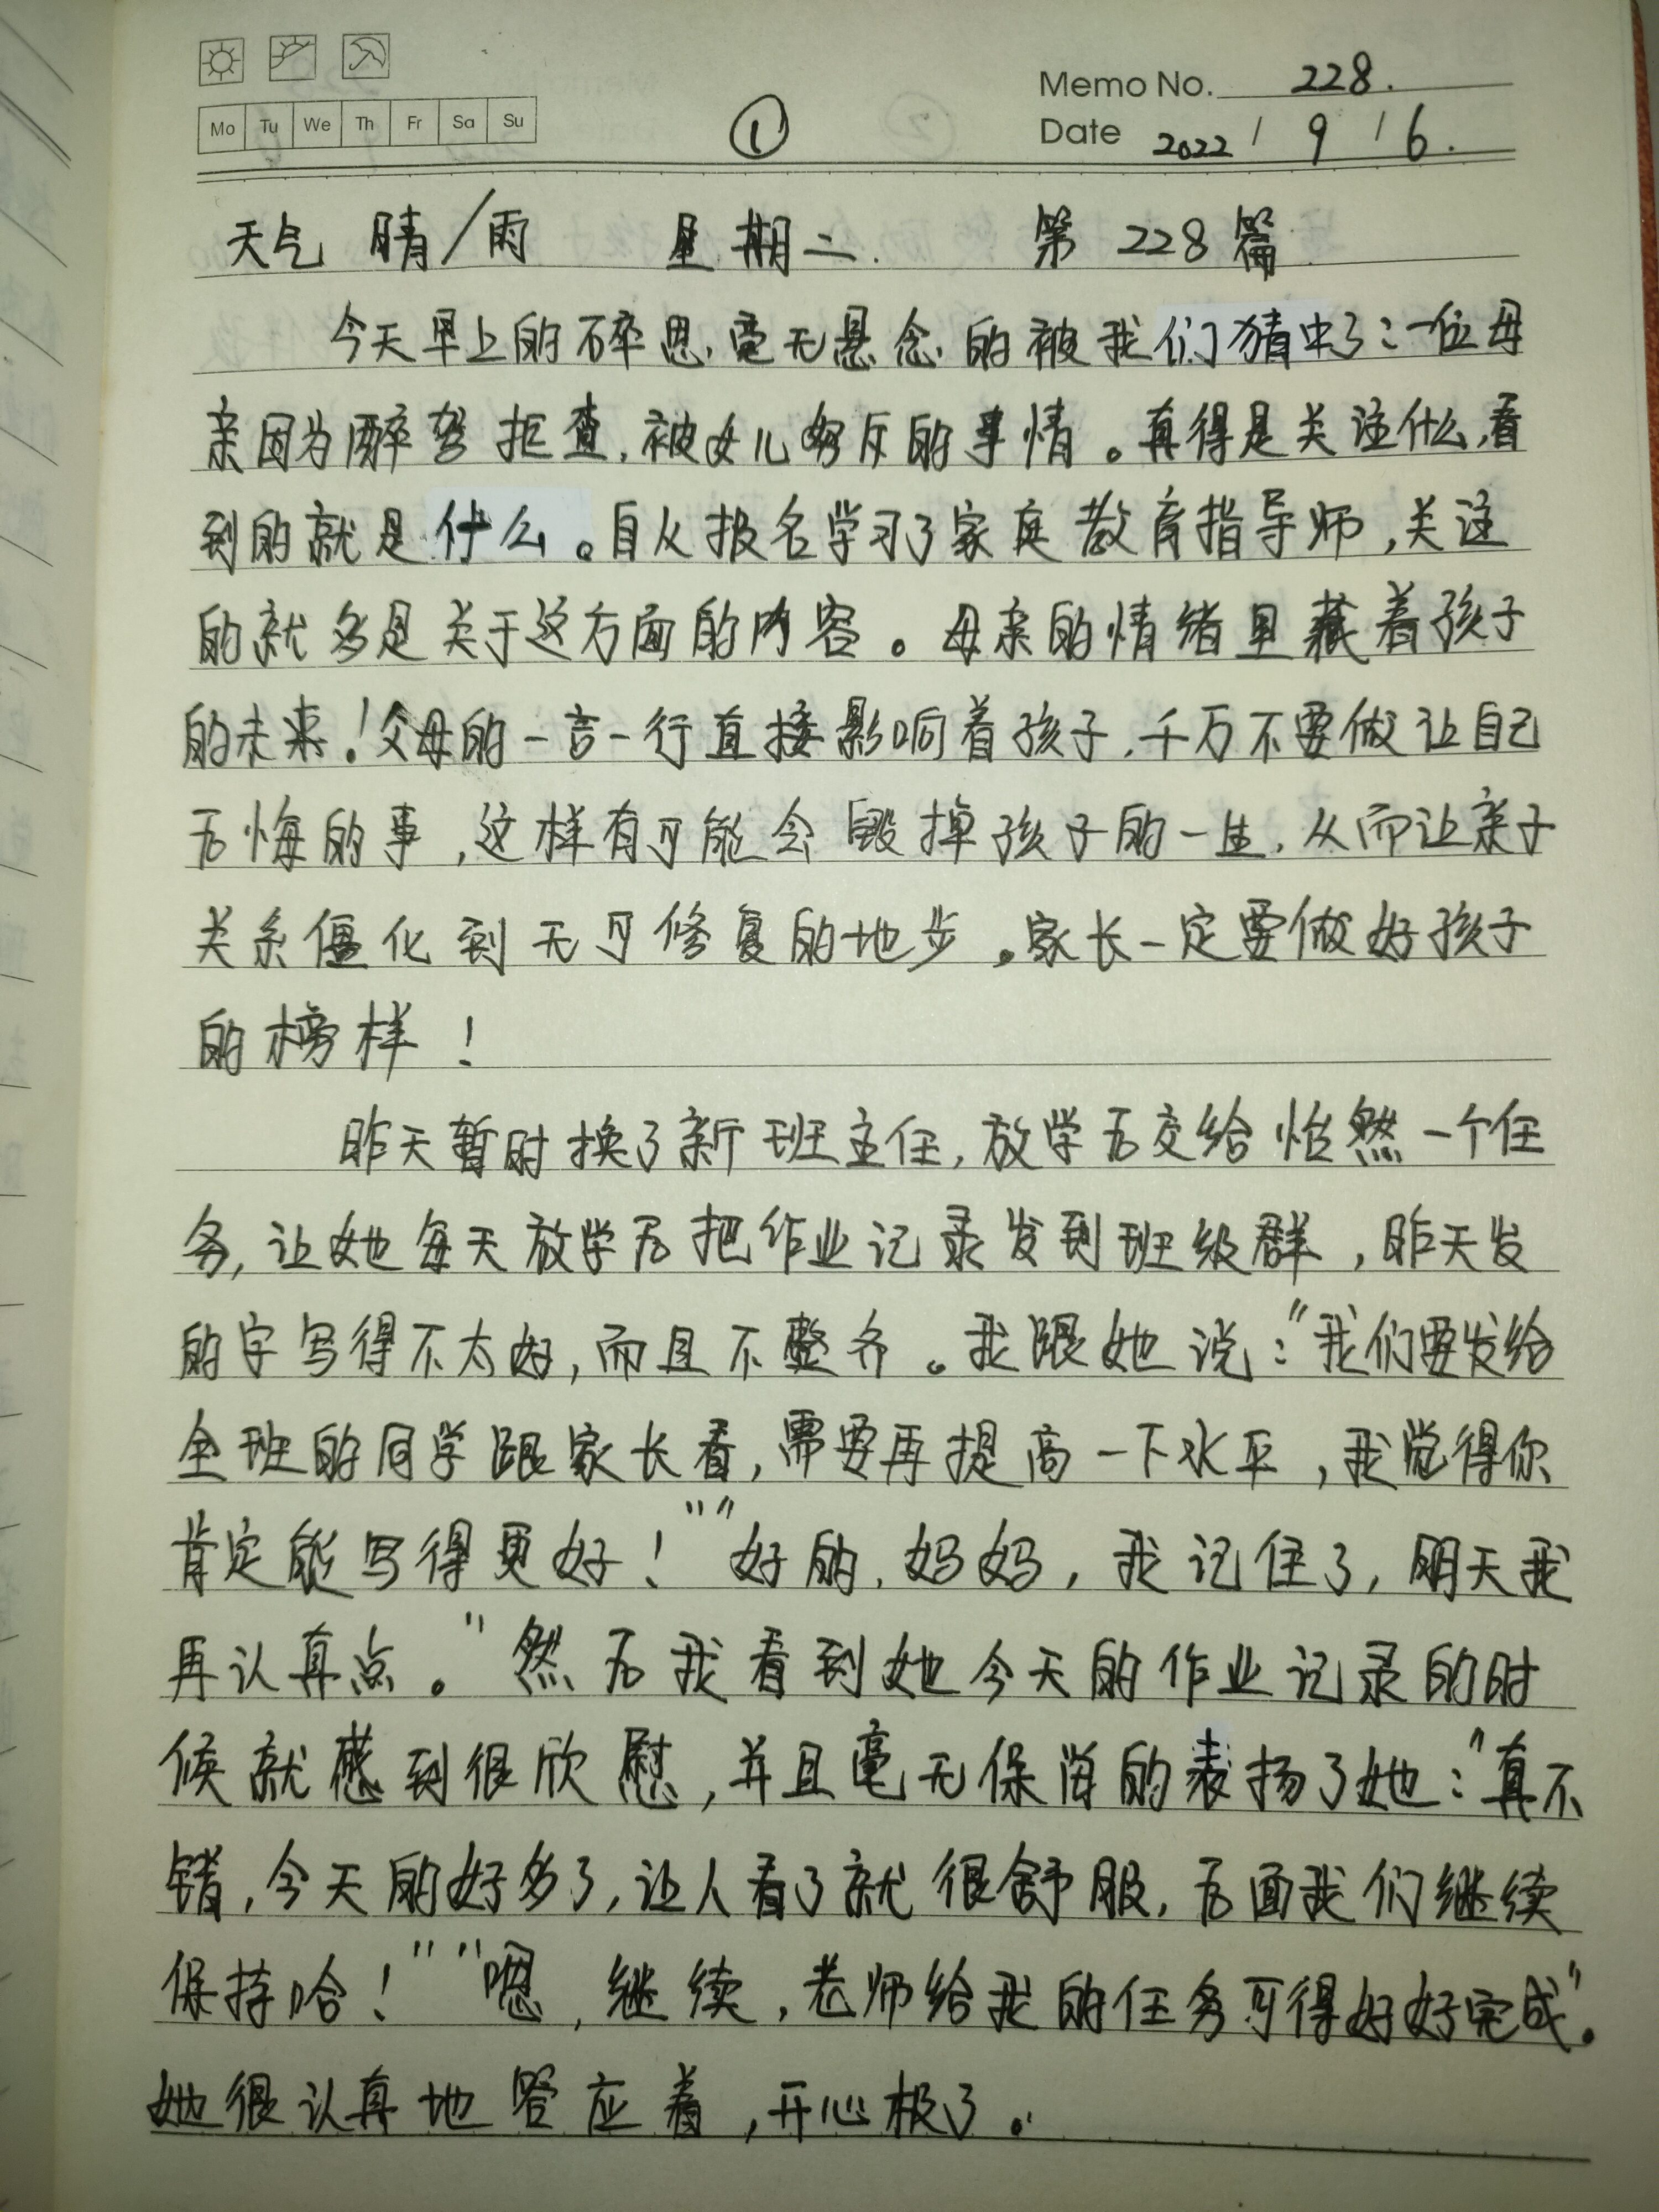 Memo No. 228.
Mo Tu We Th Fr Sa Su
①
Date 2022 / 9 / 6.
天气 晴/雨 星期二. 第228篇
今天早上的碎思,毫无悬念,的被我们猜中了:一位母
亲因为醉驾拒查,被女儿策反的事情。真得是关注什么,看
到的就是什么。自从报名学习了家庭教育指导师,关注
的就多是关于这方面的内容。母亲的情绪里藏着孩子
的未来!父母的一言一行直接影响着孩子,千万不要做让自己
后悔的事,这样有可能会毁掉孩子的一生,从而让亲子
关系僵化到无可修复的地步。家长一定要做好孩子
的榜样!
昨天暂时换了新班主任,放学后交给怡然一个任
务,让她每天放学后把作业记录发到班级群,昨天发
的字写得不太好,而且不整齐。我跟她说:“我们要发给
全班的同学跟家长看,需要再提高一下水平,我觉得你
肯定能写得更好!”“好的,妈妈,我记住了,明天我
再认真点。”然后我看到她今天的作业记录的时
候就感到很欣慰,并且毫无保留的表扬了她:“真不
错,今天的好多了,让人看了就很舒服,后面我们继续
保持哈!”“嗯,继续,老师给我的任务可得好好完成”。
她很认真地答应着,开心极了。